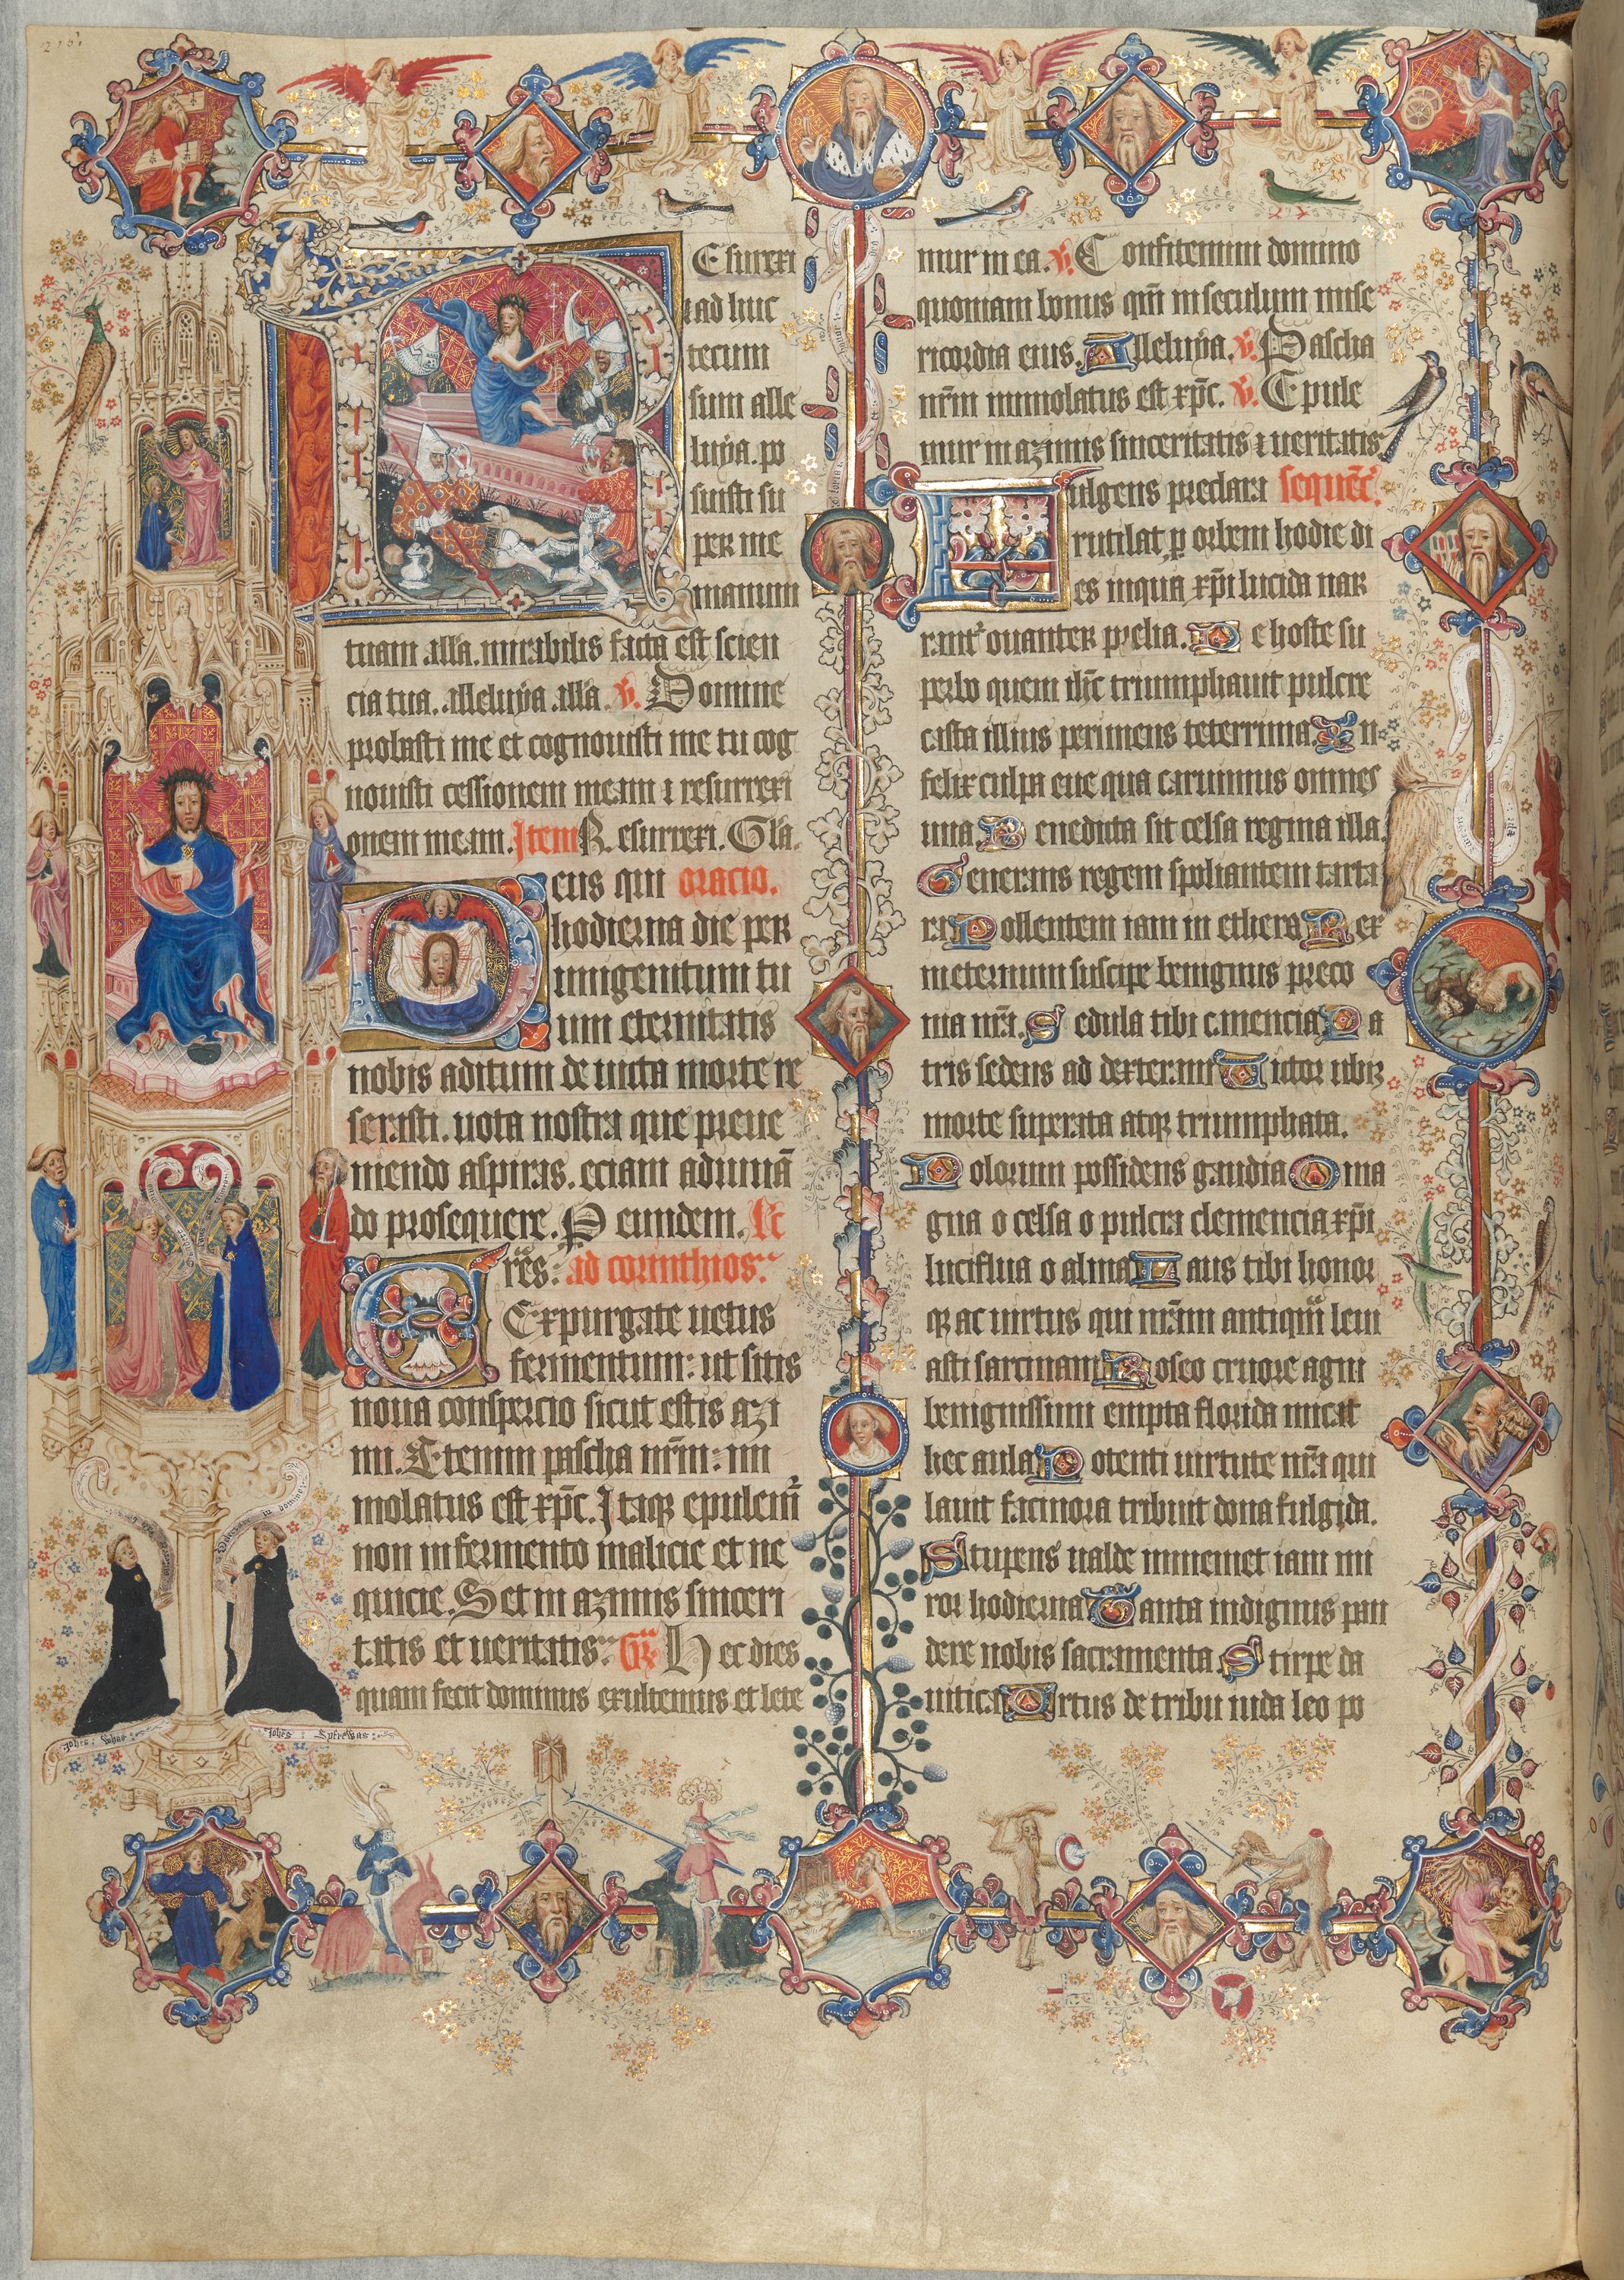 216
Esurrexi
et ad huc
tecum
sum alle
luya. po
suisti su
per me
manum
tuam alla. mirabilis facta est scien
cia tua. alleluya alla. V. Domine
probasti me et cognouisti me tu cog
nouisti cessionem meam ⁊ resurrexi
onem meam. Item R esurrexi. Gla.
Deus qui oracio.
hodierna die per
unigenitum tu
um eternitatis
nobis aditum de uicta morte re
serasti. uota nostra que preue
niendo aspiras. eciam adiuuā
do prosequere. P eundem. Lc̄
Fr̄es: ad corinthios.
Expurgate uetus
fermentum: ut sitis
noua conspercio sicut estis azi
mi. Etenim pascha nr̄m: im
molatus est xp̄c. Itaqꝫ epulem̄
non in fermento malicie et ne
quicie. Set in azimis sinceri
tatis et ueritatis. Gr̄. Hec dies
quam fecit dominus exultemus et lete
mur in ea. V. Confitemini domino
quoniam bonus qm̄ in seculum mise
ricordia eius. Alleluya. V. Pascha
nr̄m immolatus est xp̄c. V. Epule
mur in azimis sinceritatis ⁊ ueritatis.
Fulgens preclara sequēc̄.
rutilat ꝑ orbem hodie di
es in qua xp̄i lucida nar
rant᷑ ouanter prelia. De hoste su
perbo quem ih̄c triumphauit pulcre
castra illius perimens teterrima. In
felix culpa eue qua caruimus omnes
uita. Benedicta sit celsa regina illa.
Generans regem spoliantem tarta
ra. Pollentem iam in ethera Rex
in eternum suscipe benignus preco
nia nr̄a. Sedula tibi c.mencia Pa
tris sedens ad dexteram Uictor ubiqꝫ
morte superata atqꝫ triumphata.
Polorum possidens gaudia O ma
gna o celsa o pulcra clemencia xp̄i
luciflua o alma Laus tibi honor
qꝫ ac uirtus qui nr̄am antiquā leui
asti sarcinam Roseo cruore agni
benignissimi empta florida micat
hec aula Potenti uirtute nr̄a qui
lauit facinora tribuit dona fulgida.
Stupens ualde in memet iam mi
ror hodierna Tanta indignus pan
dere nobis sacramenta Stirpe da
uitica Ortus de tribu iuda leo po
Joh̄es: Whas:
Joh̄es: Syfrewas: